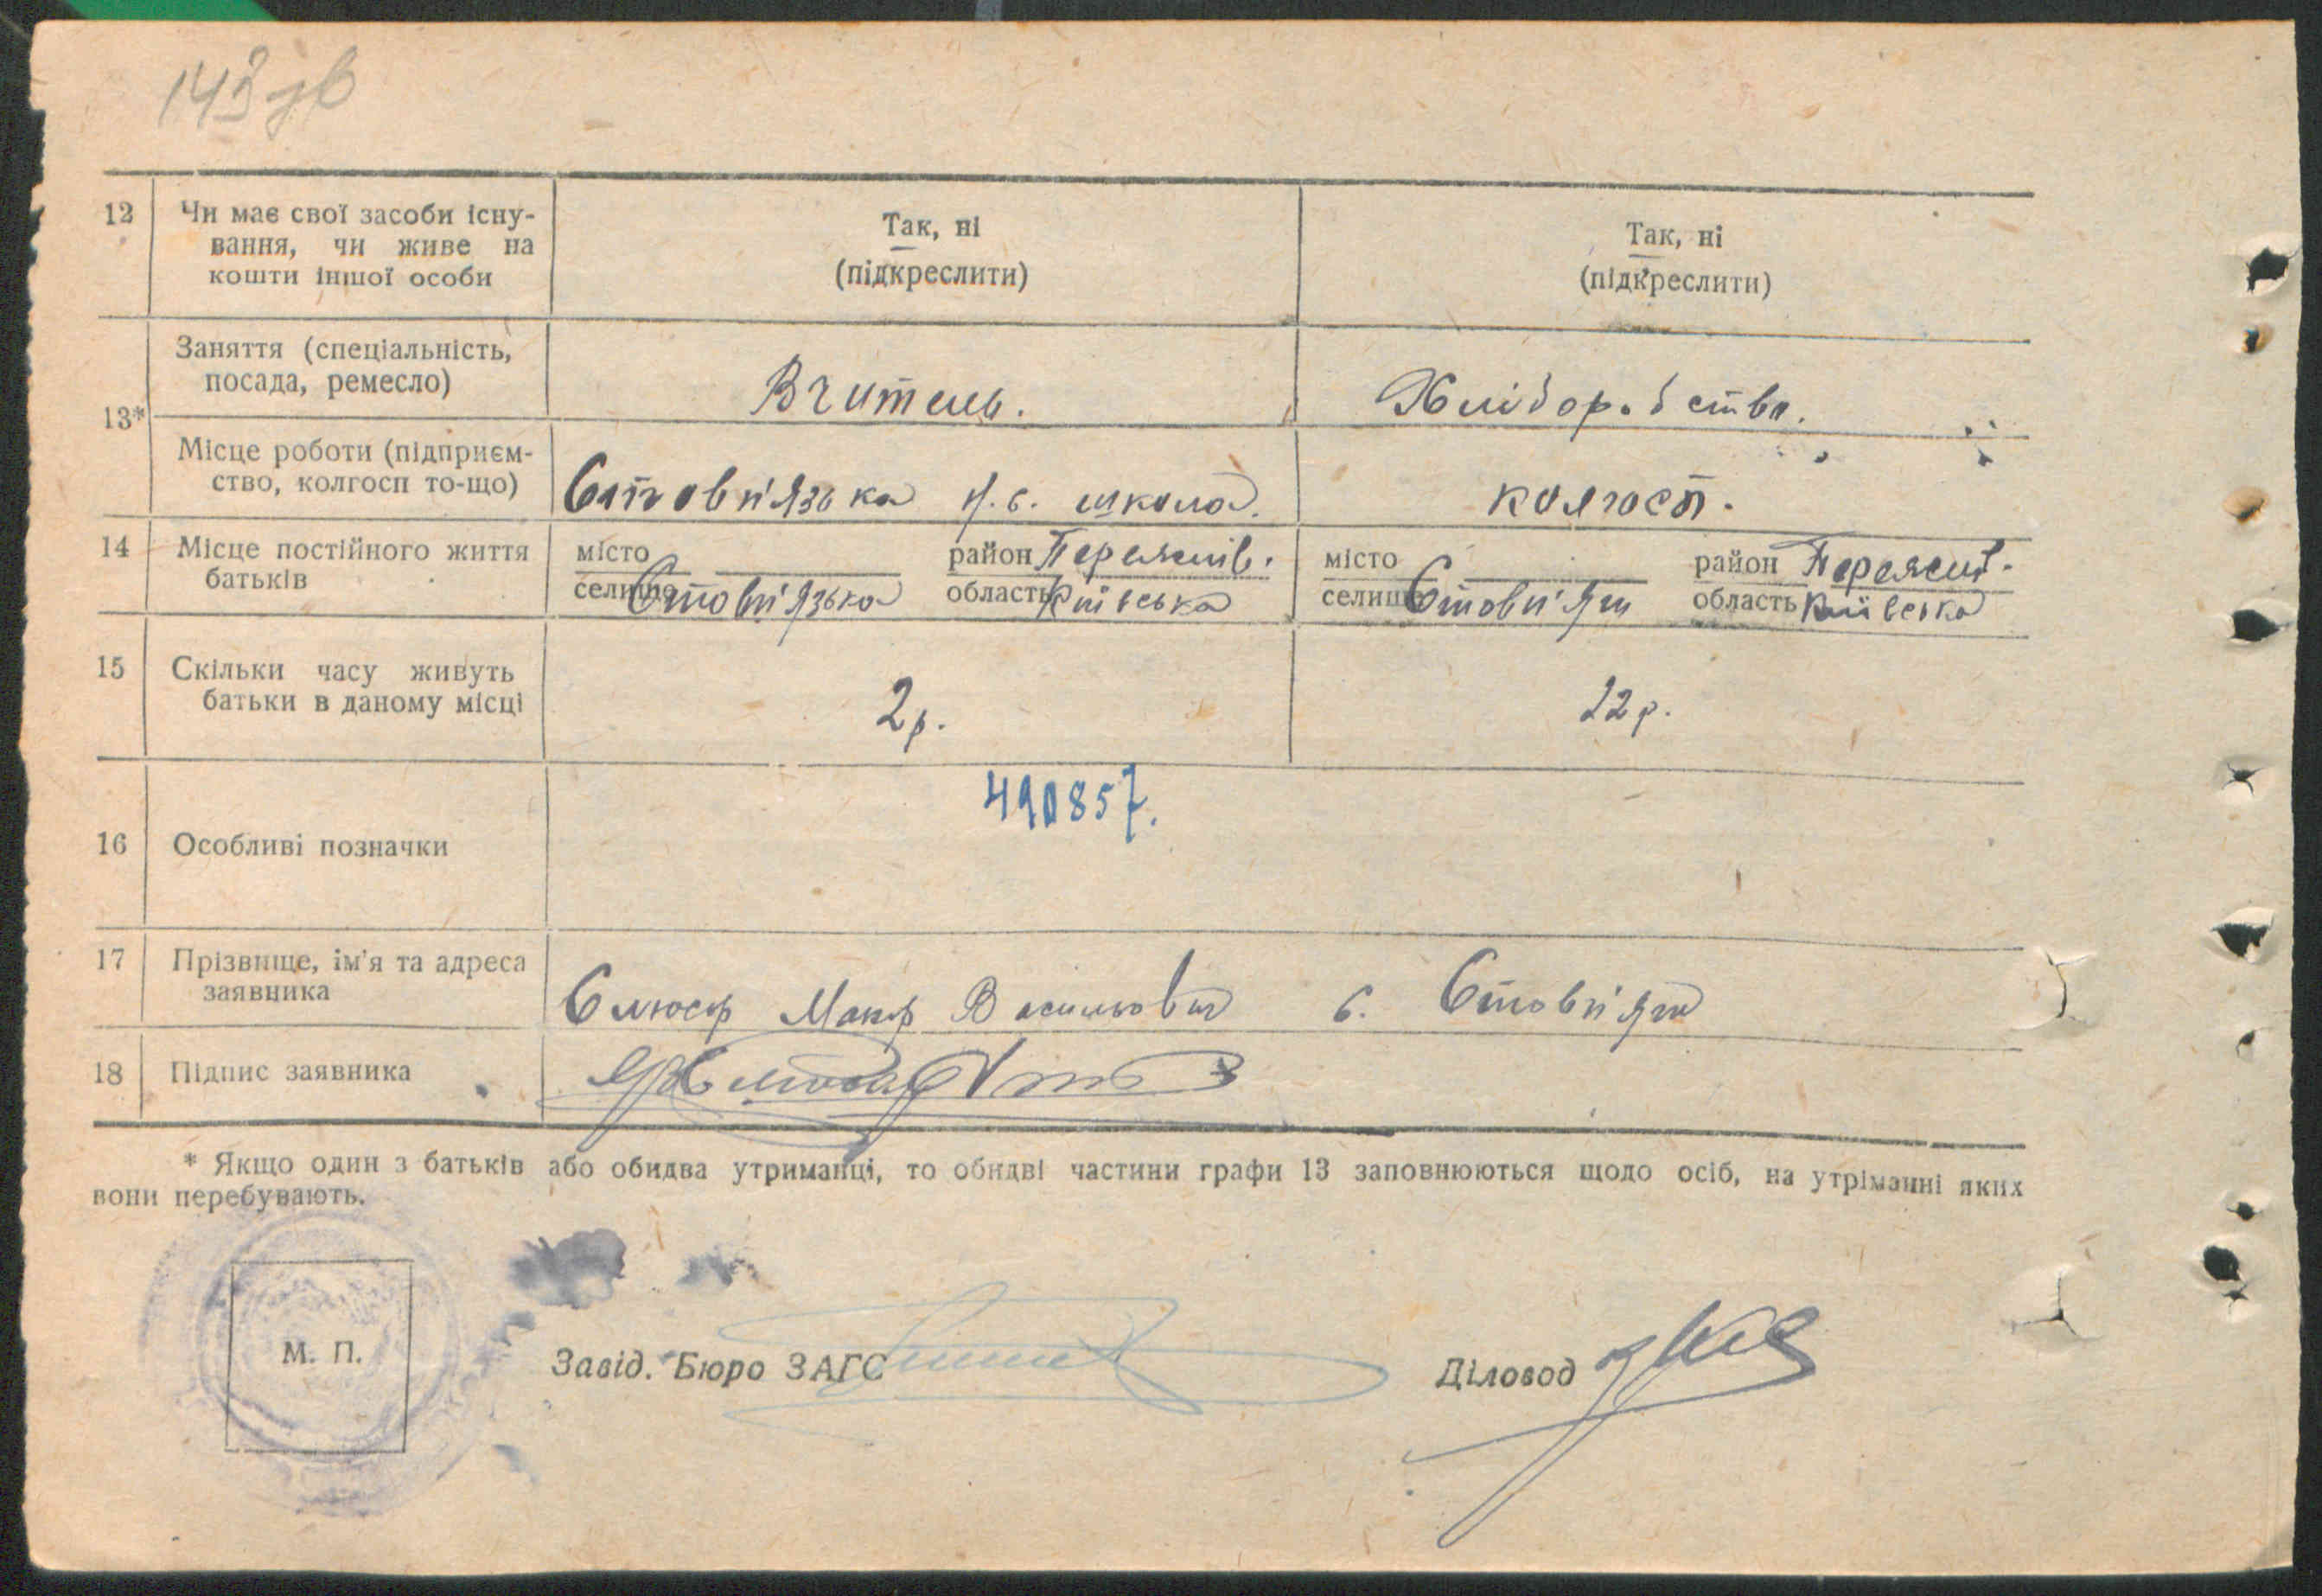 143 зв
12 Чи має свої засоби існу-
вання, чи живе на
кошти іншої особи
Так, ні
(підкреслити)
Так, ні
(підкреслити)
13*
Заняття (спеціальність,
посада, ремесло)
Вчитель.
Хліборобство.
Місце роботи (підприєм-
ство, колгосп то-що)
Стовп'язька н.с. школа.
колгосп.
14 Місце постійного життя
батьків
місто
селище Стовп'язька
район Переяслів.
область Київська
місто
селище Стовп'яги
район Переяслів.
область Київська
15 Скільки часу живуть
батьки в даному місці
2 р.
22 р.
16 Особливі позначки
490857.
17 Прізвище, ім'я та адреса
заявника
Слюсар Макар Васильович с. Стовп'яги
18 Підпис заявника
* Якщо один з батьків або обидва утриманці, то обидві частини графи 13 заповнюються щодо осіб, на утріманні яких
вони перебувають.
М. П.
Завід. Бюро ЗАГС
Діловод